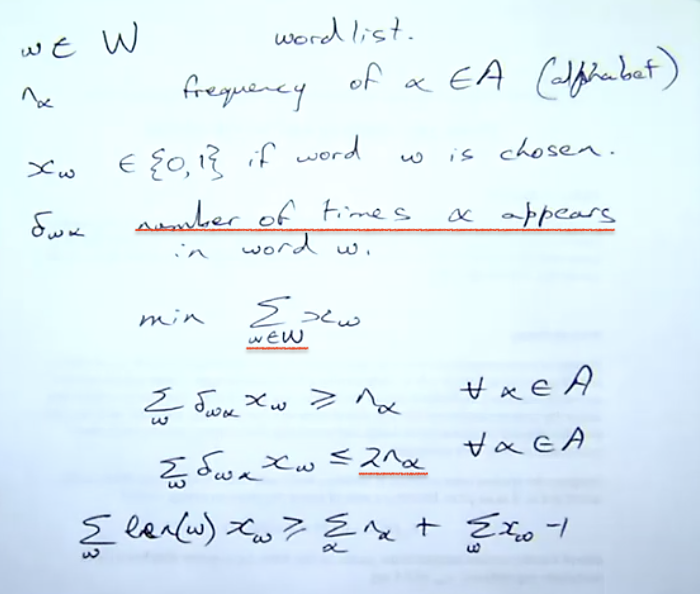 w ∈ W wordlist.
n_α frequency of α ∈ A (alphabet)
x_w ∈ {0,1} if word w is chosen.
δ_wα number of times α appears
in word w.
min Σ_{w∈W} x_w
Σ_w δ_wα x_w ≥ n_α ∀ α ∈ A
Σ_w δ_wα x_w ≤ 2n_α ∀ α ∈ A
Σ_w len(w) x_w ≥ Σ_α n_α + Σ_w x_w -1